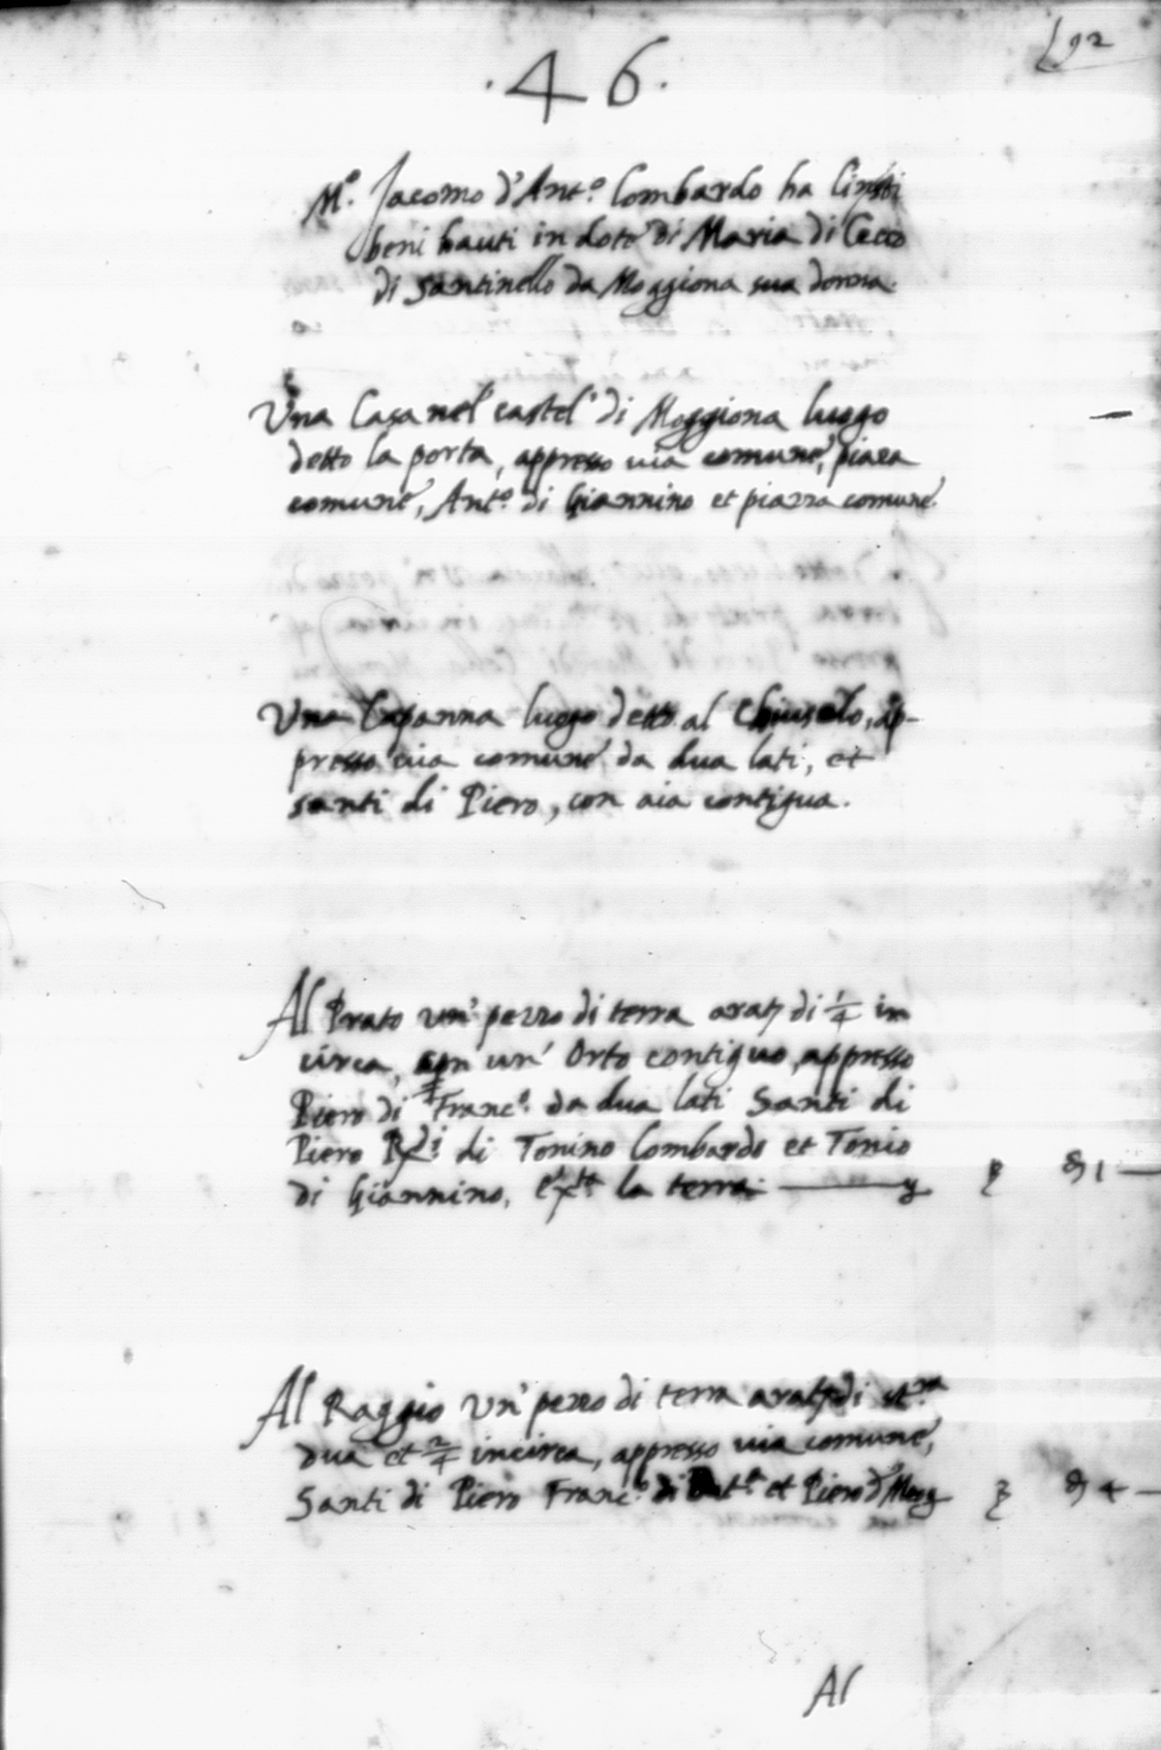 192
.46.
M.º Jacomo d'Ant.º Lombardo ha l'inf.ti
beni hauti in dote di Maria di Cecco
di Santinello da Moggiona sua donna.
Una Casa nel castel' di Moggiona luogo
detto la porta, appresso via comune, piaza
comune, Ant.º di Giannino et piazza comune.
Una Capanna luogo detto al Chiuselo, ap-
presso via comune da dua lati, et
santi di Piero, con aia contigua.
Al Prato un' pezzo di terra arat. di 1/4 in
circa, con un' Orto contiguo, appresso
Piero di Franc.º da dua lati Santi di
Piero di Tonino Lombardo et Tonio
di Giannino, la terra
Al Raggio un' pezzo di terra arat. di st.ra
dua et 2/4 incirca, appresso via comune,
Santi di Piero Franc.º di et Piero d'
Al